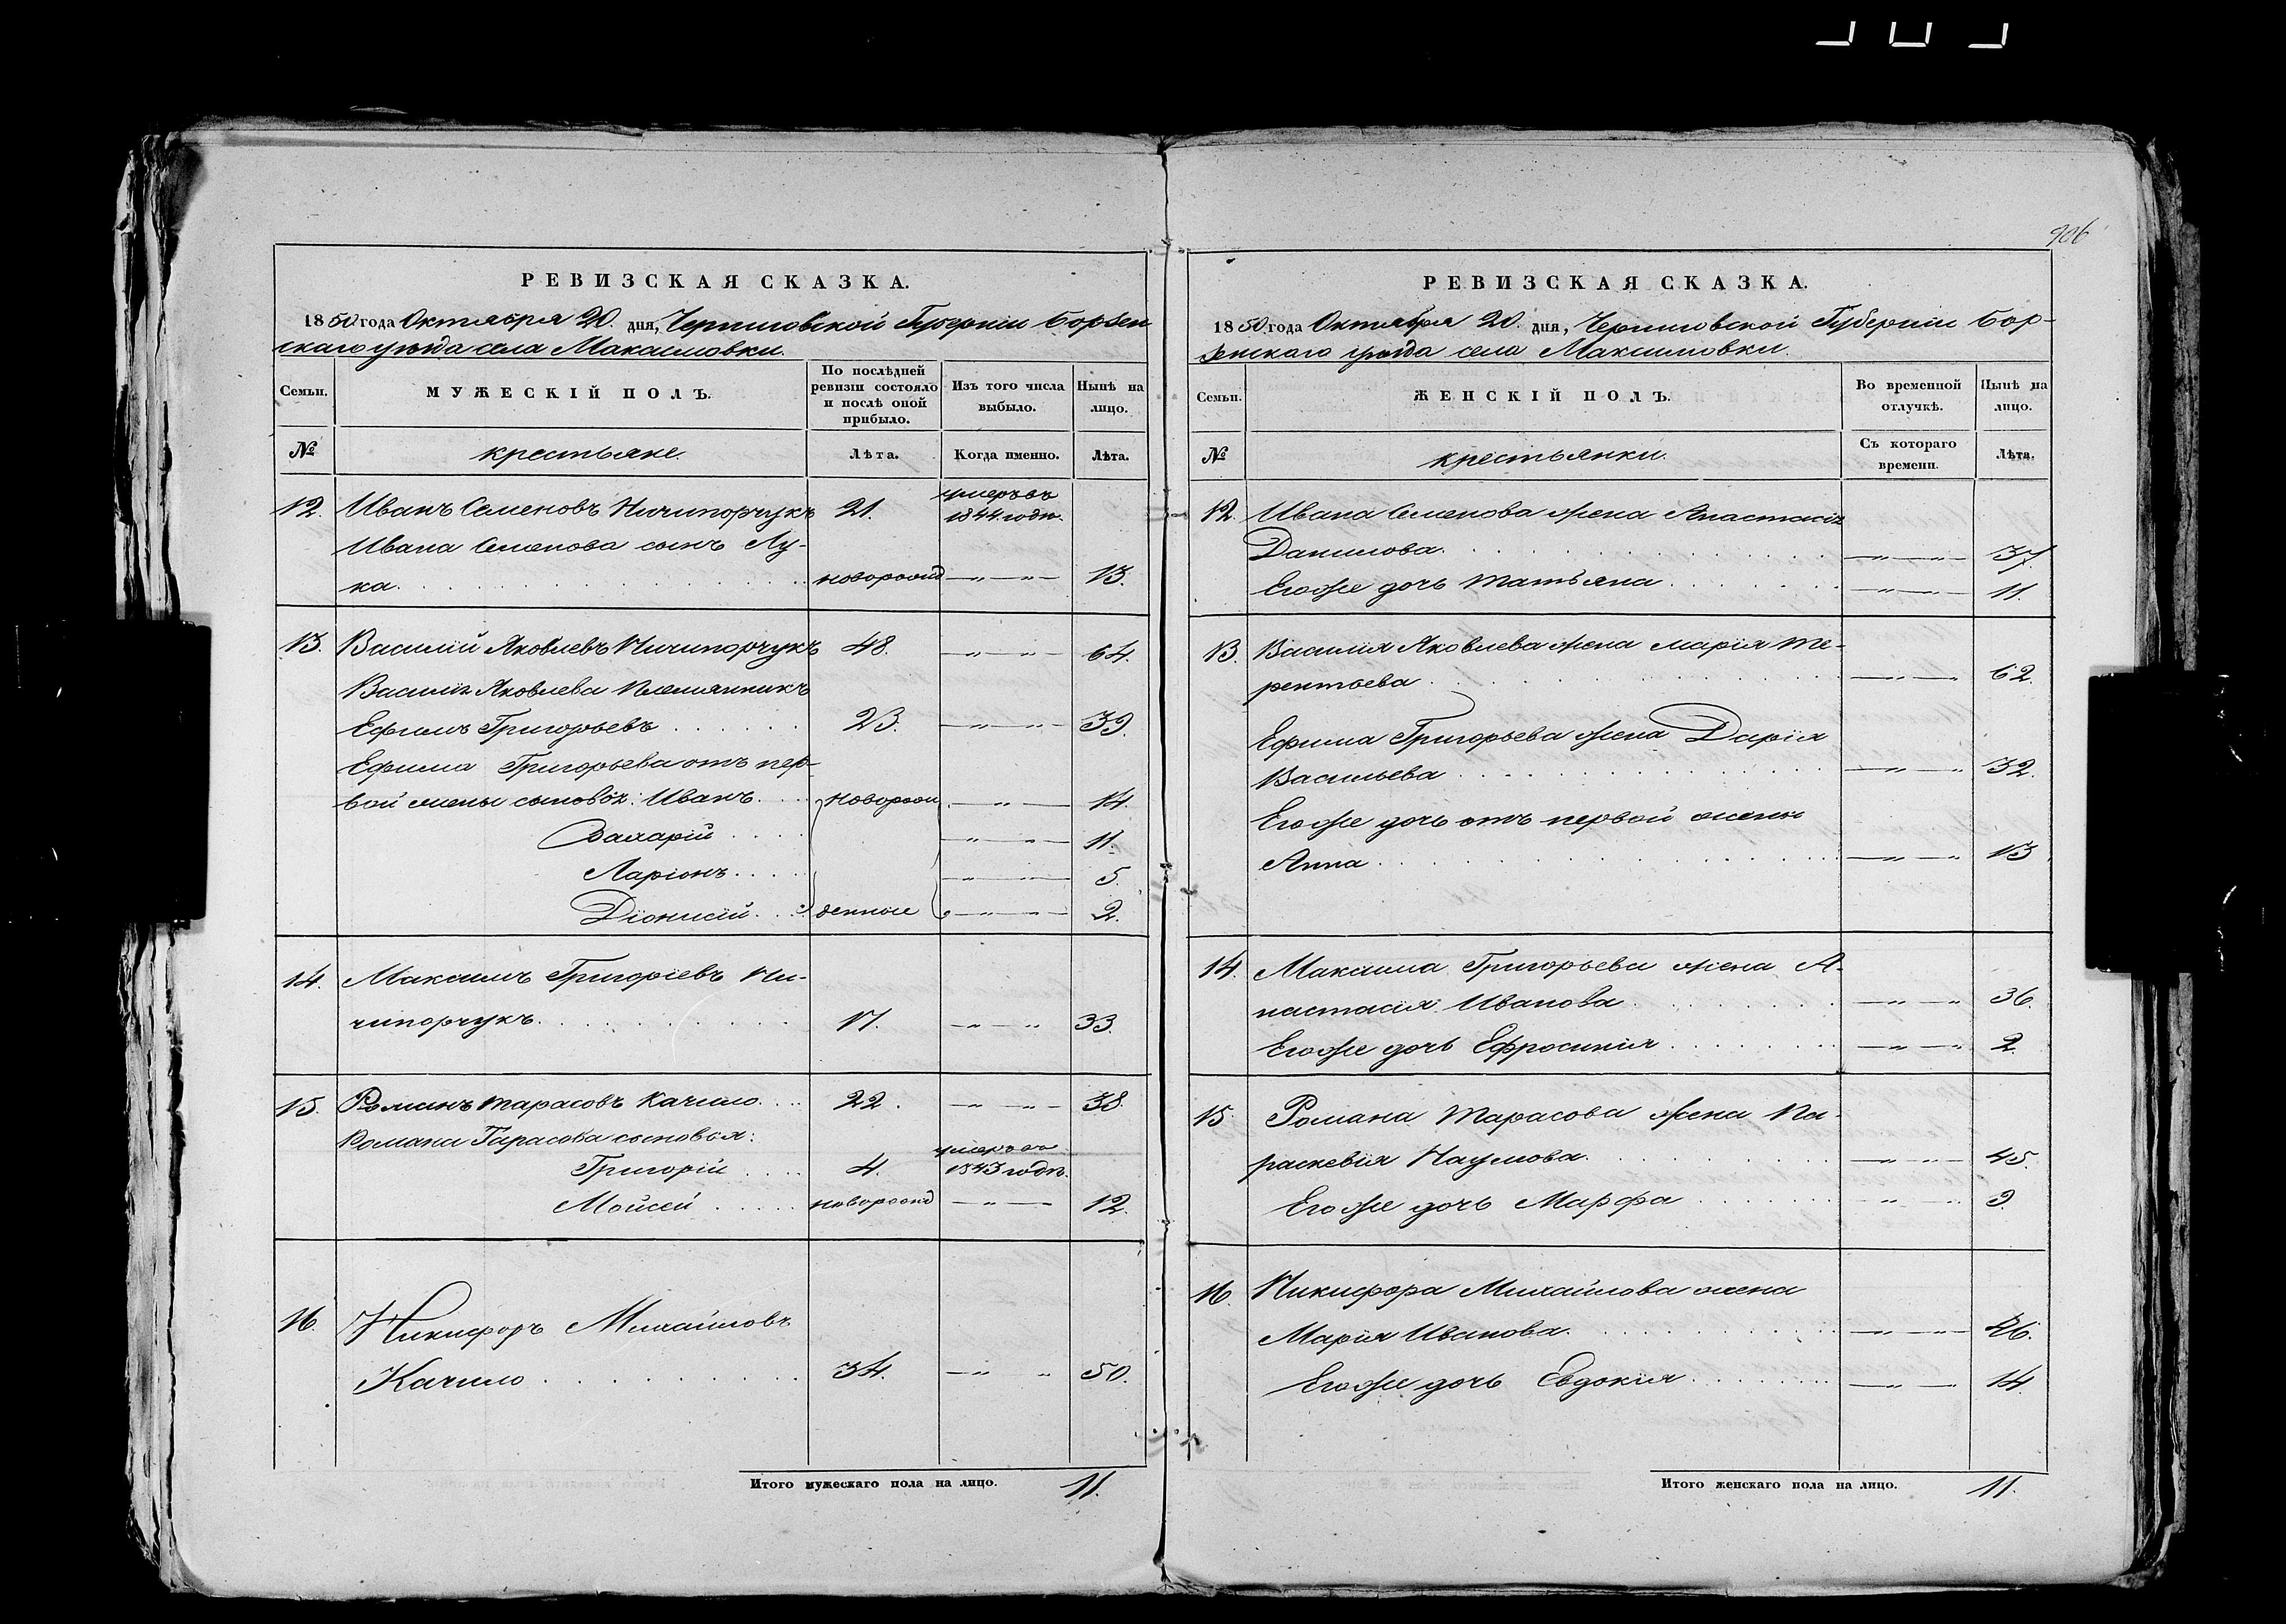 906
РЕВИЗСКАЯ СКАЗКА.
1850 года Октября 20. дня, Черниговской Губерніи Борзен
скаго уѣзда села Максимовки.
Семьи.
МУЖЕСКІЙ ПОЛЪ.
По послѣдней
ревизіи состояло
и послѣ оной
прибыло.
Изъ того числа
выбыло.
Нынѣ на
лицо.
№
крестьяне.
Лѣта.
Когда именно.
Лѣта.
12. Иванъ Семеновъ Ничипорчукъ 21. умеръ въ
1844 годѣ.
Ивана Семенова сынъ Лу-
ка новорожд — „ — „ — 13.
13. Василій Яковлевъ Ничипорчукъ 48. — „ — „ — 64.
Василія Яковлева племянникъ
Ефимъ Григорьевъ 23. — „ — „ — 39.
Ефима Григорьева отъ пер-
вой жены сыновья: Иванъ новорож — „ — 14.
Захарій — „ — „ — 11.
Ларіонъ — „ — „ — 5.
Діонисій денные — „ — „ — 2.
14. Максимъ Григоріевъ Ни-
чипорчукъ 17. — „ — „ 33.
15. Романъ Тарасовъ Качило 22. — „ — „ — 38.
Романа Тарасова сыновья:
Григорій 4. умеръ въ
1843 годѣ.
Мойсей новорожд — „ — 12.
16. Никифоръ Михайловъ
Качило 34. — „ „ 50.
Итого мужескаго пола на лицо. 11.
РЕВИЗСКАЯ СКАЗКА.
1850 года Октября 20. дня, Черниговской Губерніи Бор-
зенскаго уѣзда села Максимовки.
Семьи.
ЖЕНСКІЙ ПОЛЪ.
Во временной
отлучкѣ.
Нынѣ на
лицо.
№
крестьянки.
Съ котораго
времени.
Лѣта.
12. Ивана Семенова жена Анастасія
Данилова — „ — „ — 37.
Егоже дочь Татьяна — „ — „ — 11.
13. Василія Яковлева жена Марія Те-
рентьева — „ — „ 62.
Ефима Григорьева жена Дарія
Васильева — „ — „ 32.
Егоже дочь отъ первой жены
Анна — „ — „ 13
14. Максима Григорьева жена А-
настасія Иванова — „ — „ 36.
Егоже дочь Ефросинія — „ — „ 2.
15. Романа Тарасова жена Па-
раскевія Наумова — „ — „ 45.
Егоже дочь Марфа „ — „ 9.
16. Никифора Михайлова жена
Марія Иванова — „ — „ — 46.
Егоже дочь Евдокія — „ — „ — 14.
Итого женскаго пола на лицо. 11.